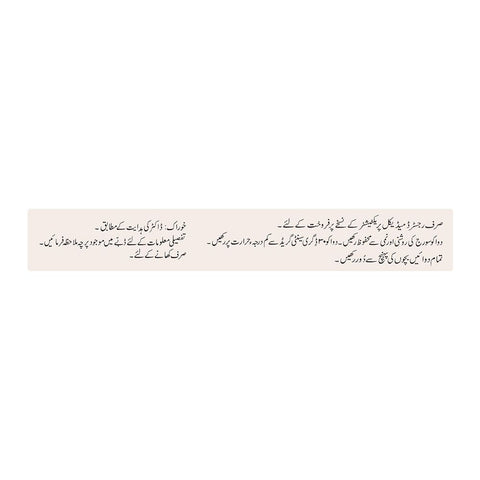 صرف رجسٹرڈ میڈیکل پریکٹیشنر کے نسخے پر فروخت کے لئے۔
دوا کو سورج کی روشنی اور نمی سے محفوظ رکھیں۔ دوا کو ۳۰ ڈگری سینٹی گریڈ سے کم درجہ حرارت پر رکھیں۔
تمام دوائیں بچوں کی پہنچ سے دُور رکھیں۔
خوراک: ڈاکٹر کی ہدایت کے مطابق۔
تفصیلی معلومات کے لئے ڈبے میں موجود پرچہ ملاحظہ فرمائیں۔
صرف کھانے کے لئے۔